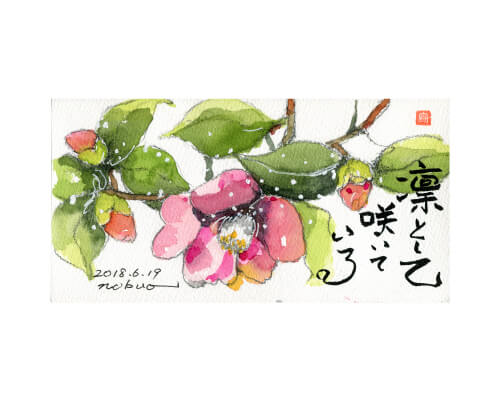 凛として
咲いて
いる
2018.6.19
nobuo